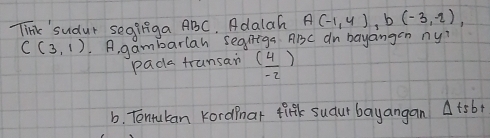 Titik sudut segitiga ABC. Adalah A(-1,4), b(-3,-2),
C(3,1). A. gambarlah segitiga ABC dn bayangan ny?
pada transan (4/-2)
b. Tentukan kordinat titik sudut bayangan Δ tsbt